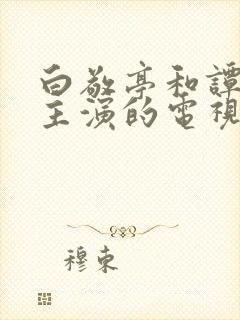 白敬亭和譚
主演的電視
穆東